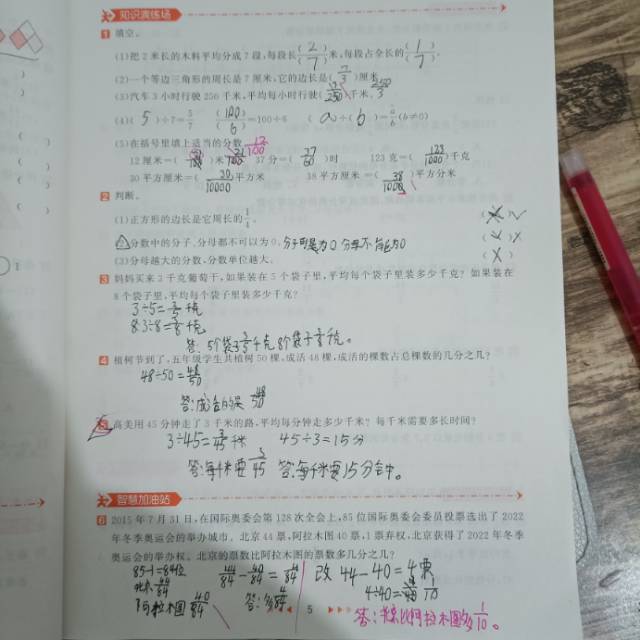 知识演练场
1 填空。
(1)把2米长的木料平均分成7段,每段长(2/7)米,每段占全长的(1/7)。
(2)一个等边三角形的周长是7厘米,它的边长是(7/3)厘米。
(3)汽车3小时行驶256千米,平均每小时行驶( )千米。
(4)(5)÷7=5/7 (100/6)=100÷6 (a)÷(b)=a/b(b≠0)
(5)在括号里填上适当的分数。
12厘米=( )米 37分=(37/60)时 123克=(123/1000)千克
30平方厘米=(30/10000)平方米 38平方厘米=( )平方分米
2 判断。
(1)正方形的边长是它周长的1/4。 (×)√
(2)分数中的分子、分母都不可以为0。分子可是为0 分母不能为0 ( )×
(3)分母越大的分数,分数单位越大。 (×)
3 妈妈买来3千克葡萄干,如果装在5个袋子里,平均每个袋子里装多少千克?如果装在
8个袋子里,平均每个袋子里装多少千克?
4 植树节到了,五年级学生共植树50棵,成活48棵,成活的棵数占总棵数的几分之几?
48÷50=48/50
5 高美用45分钟走了3千米的路,平均每分钟走多少千米?每千米需要多长时间?
3÷45=3/45千米 45÷3=15分
答:每千米要15分钟。
智慧加油站
6 2015年7月31日,在国际奥委会第128次全会上,85位国际奥委会委员投票选出了2022
年冬季奥运会的举办城市。北京44票,阿拉木图40票,1票弃权,北京获得了2022年冬季
奥运会的举办权。北京的票数比阿拉木图的票数多几分之几?
85-1=84位 44/84-40/84=4/84 改 44-40=4票
北京44/84 答:多4/84 4÷40=1/10
阿拉木图40/84
5
答:北京比阿拉木图多1/10。